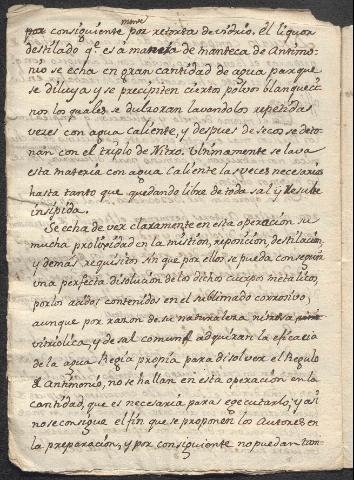 mente
consiguiente por retorta de vidrio. El liquor
destilado qe. es a manera de manteca de Antimo-
nio se echa en gran cantidad de agua para que
se diluya y se precipiten ciertos polvos blanqueci-
nos los quales se dulzoran lavandolos repetidas
vezes con agua caliente, y despues de secos se deto-
nan con el triplo de Nitro. Ultimamente se lava
esta materia con agua caliente las veces necesarias
hasta tanto que quedando libre de toda sal y
insipida.
Se echa de ver claramente en esta operacion su
mucha prolixidad en la mistion, reposicion, destilacion,
y demas requisitos sin que por ellos se pueda conseguir
una perfecta disolucion de los dichos cuerpos metalicos,
por los acidos contenidos en el sublimado corrosivo,
aunque por razon de su naturaleza nitrosa
vitriolica, y de sal comun adquiran la eficacia
de la agua Regia propia para disolver el Regulo
de Antimonio, no se hallan en esta operacion en la
cantidad, que es necesaria para egecutarlo; y asi
no se consigue el fin que se proponen los Autores en
la preparacion, y por consiguiente no puedan tam-